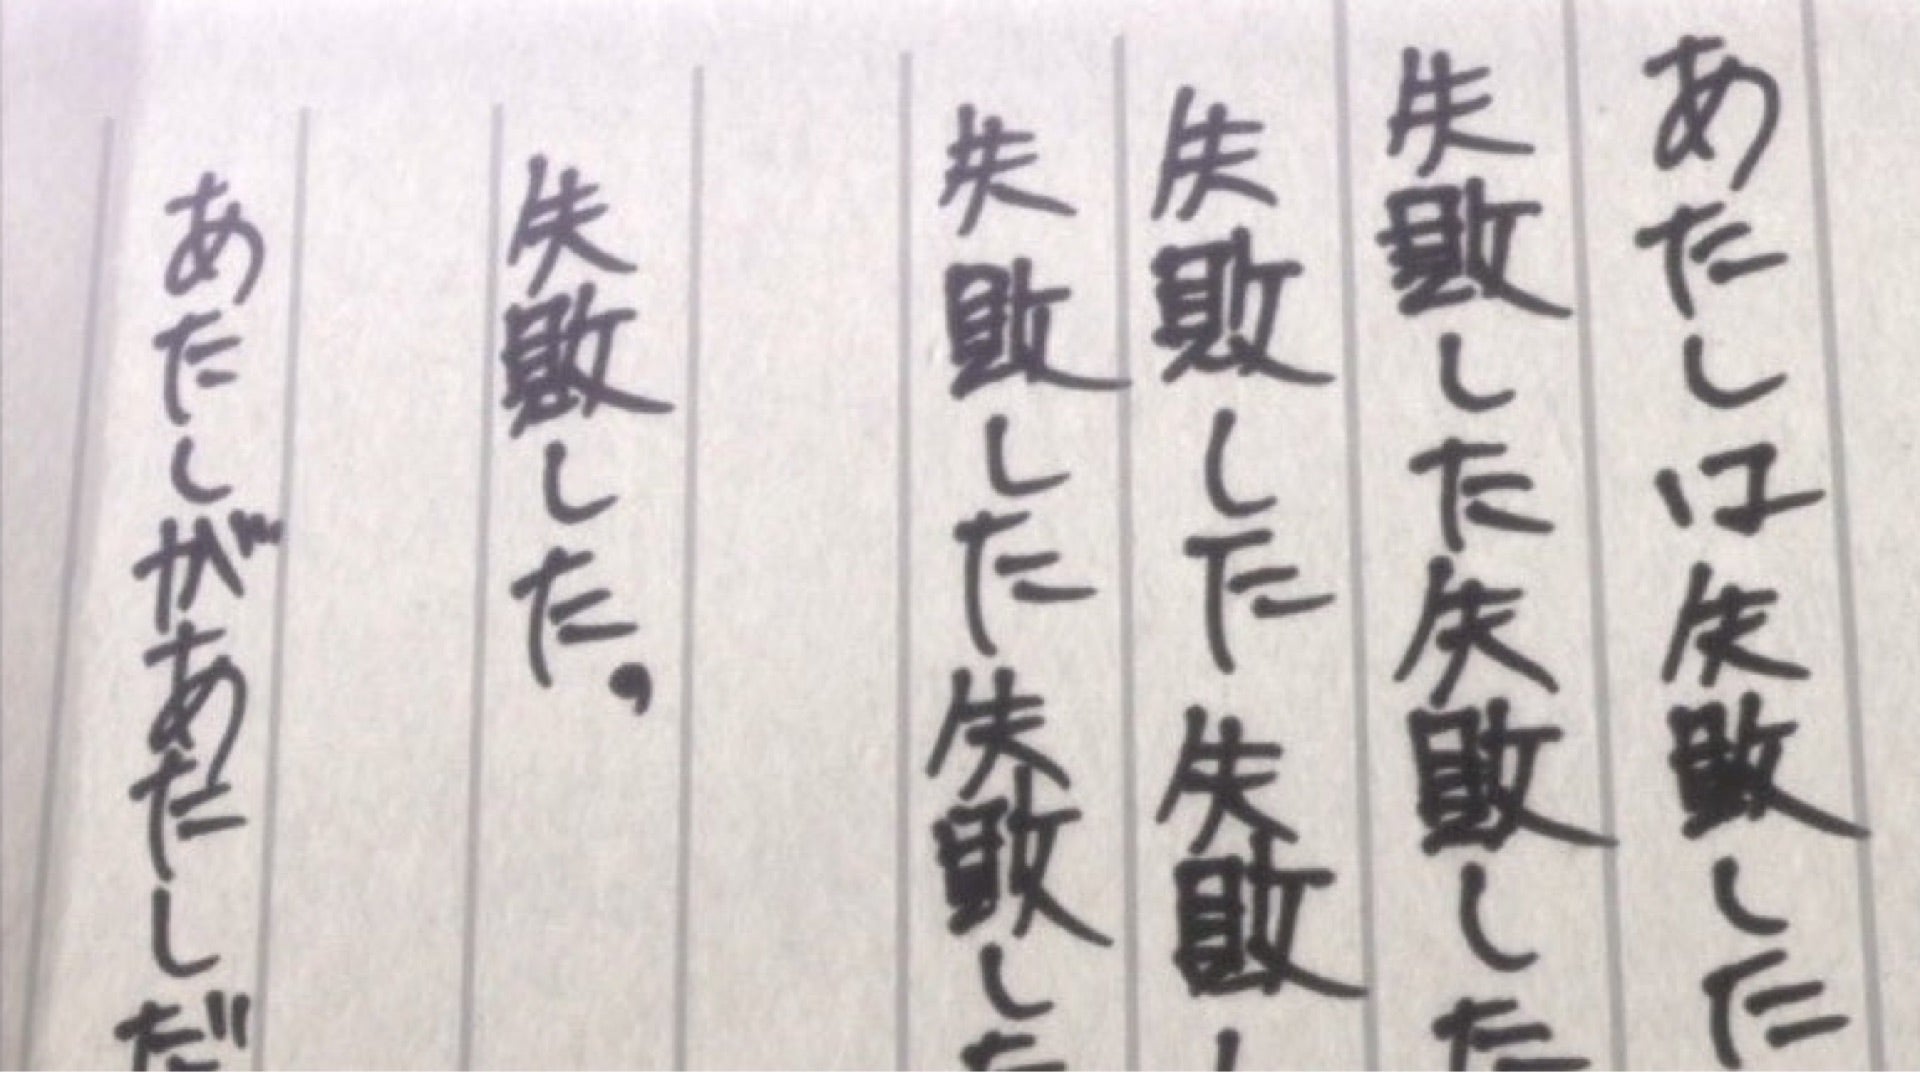 あたしは失敗した
失敗した失敗した
失敗した失敗し
失敗した失敗した
失敗した,
あたしがあたしだ